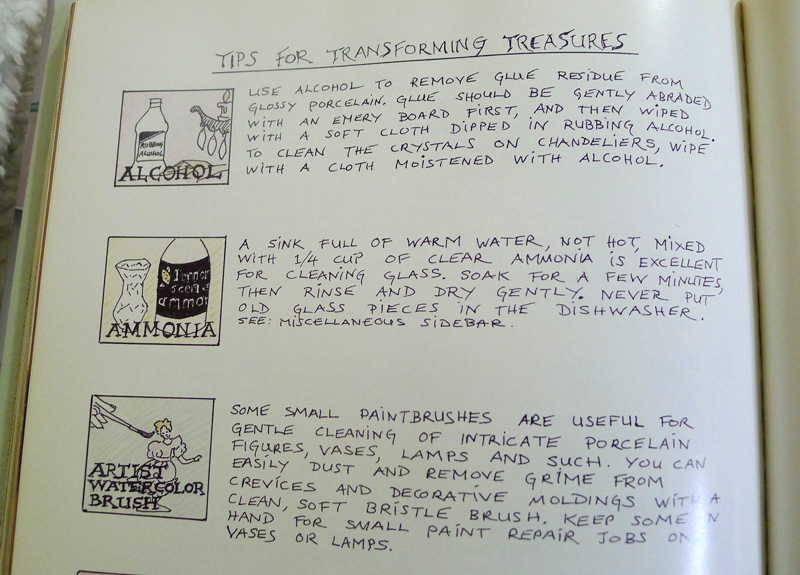 TIPS FOR TRANSFORMING TREASURES
RUBBING
ALCOHOL
ALCOHOL
USE ALCOHOL TO REMOVE GLUE RESIDUE FROM
GLOSSY PORCELAIN. GLUE SHOULD BE GENTLY ABRADED
WITH AN EMERY BOARD FIRST, AND THEN WIPED
WITH A SOFT CLOTH DIPPED IN RUBBING ALCOHOL.
TO CLEAN THE CRYSTALS ON CHANDELIERS, WIPE
WITH A CLOTH MOISTENED WITH ALCOHOL.
AMMONIA
A SINK FULL OF WARM WATER, NOT HOT, MIXED
WITH 1/4 CUP OF CLEAR AMMONIA IS EXCELLENT
FOR CLEANING GLASS. SOAK FOR A FEW MINUTES,
THEN RINSE AND DRY GENTLY. NEVER PUT
OLD GLASS PIECES IN THE DISHWASHER.
SEE: MISCELLANEOUS SIDEBAR.
ARTIST
WATERCOLOR
BRUSH
SOME SMALL PAINTBRUSHES ARE USEFUL FOR
GENTLE CLEANING OF INTRICATE PORCELAIN
FIGURES, VASES, LAMPS AND SUCH. YOU CAN
EASILY DUST AND REMOVE GRIME FROM
CREVICES AND DECORATIVE MOLDINGS WITH A
CLEAN, SOFT BRISTLE BRUSH. KEEP SOME ON
HAND FOR SMALL PAINT REPAIR JOBS ON
VASES OR LAMPS.